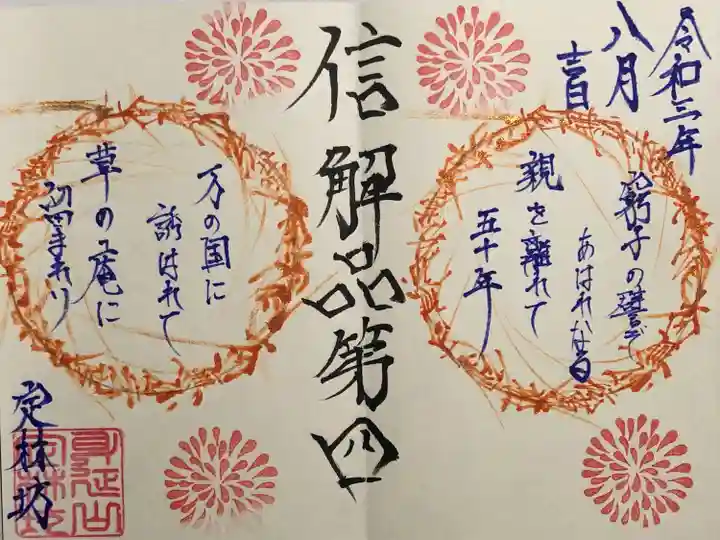 令和三年
八月
吉日
窮子の譬ぞ
あはれなる
親を離れて
五十年
信解品第四
万の国に
誘はれて
草の庵に
留まれり
定林坊
身延山
定林坊